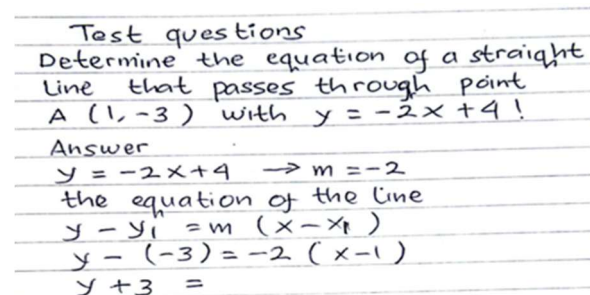 Test questions
Determine the equation of a straight
line that passes through point
A (1, -3) with y = -2x + 4!
Answer
y = -2x+4 → m = -2
the equation of the line
y - y₁ = m (x - x₁)
y - (-3) = -2 (x-1)
y + 3 =